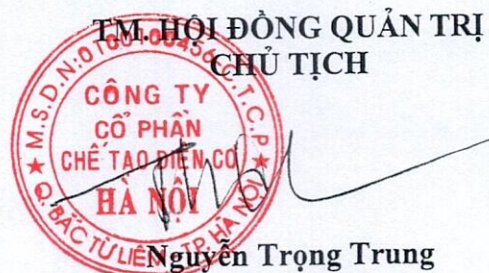 TM. HỘI ĐỒNG QUẢN TRỊ
CHỦ TỊCH
M.S.D.N:0100100456-C.T.C.P
CÔNG TY
CỔ PHẦN
CHẾ TẠO ĐIỆN CƠ
HÀ NỘI
Q.BẮC TỪ LIÊM-TP.HÀ NỘI
Nguyễn Trọng Trung